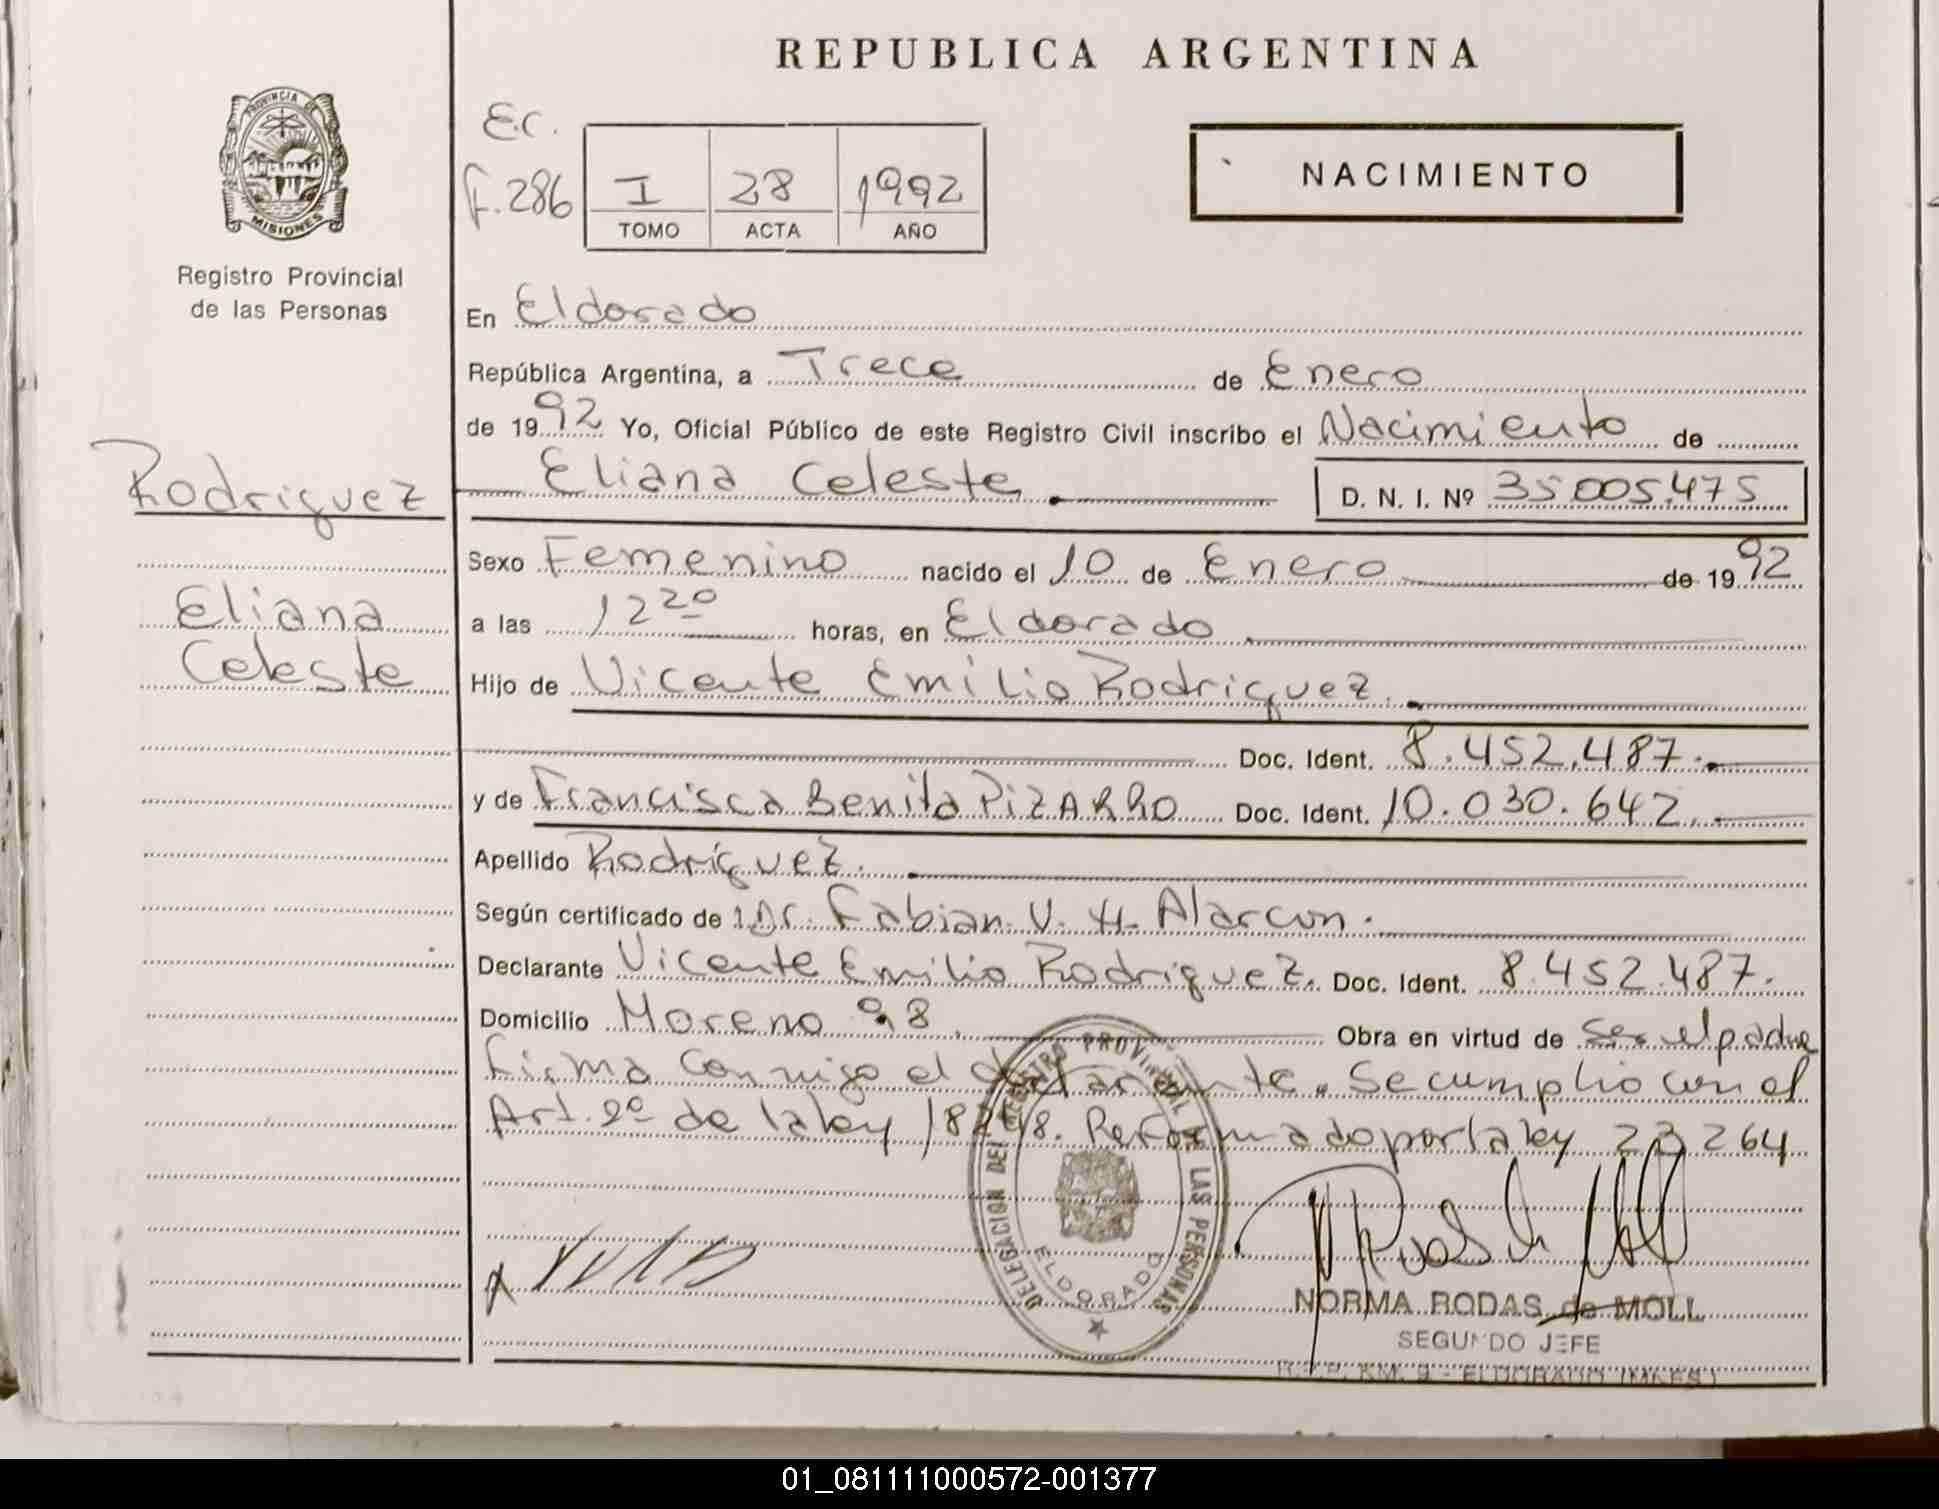 REPUBLICA ARGENTINA
PROVINCIA DE
MISIONES
Registro Provincial
de las Personas
E.C.
F. 286
I 28 1992
TOMO ACTA AÑO
NACIMIENTO
En Eldorado
República Argentina, a Trece de Enero
de 1992 Yo, Oficial Público de este Registro Civil inscribo el Nacimiento de
Eliana Celeste D. N. I. Nº 35.005.475
Rodriguez
Eliana
Celeste
Sexo Femenino nacido el 10 de Enero de 1992
a las 12 20 horas, en Eldorado
Hijo de Vicente Emilio Rodriguez.
Doc. Ident. 8.452.487.
y de Francisca Benita PIZARRO Doc. Ident. 10.030.642.
Apellido Rodríguez.
Según certificado de Dr. Fabian V. H. Alarcon.
Declarante Vicente Emilio Rodriguez. Doc. Ident. 8.452.487.
Domicilio Moreno 98. Obra en virtud de Ser el padre
Firma conmigo el declarante. Se cumplio con el
Art. 2º de la ley 18248. Reformado por la ley 23264
DELEGACION DEL REGISTRO PROVINCIAL DE LAS PERSONAS
ELDORADO
NORMA RODAS de MOLL
SEGUNDO JEFE
R.P.P. KM. 9 - ELDORADO (MNES)
01_081111000572-001377